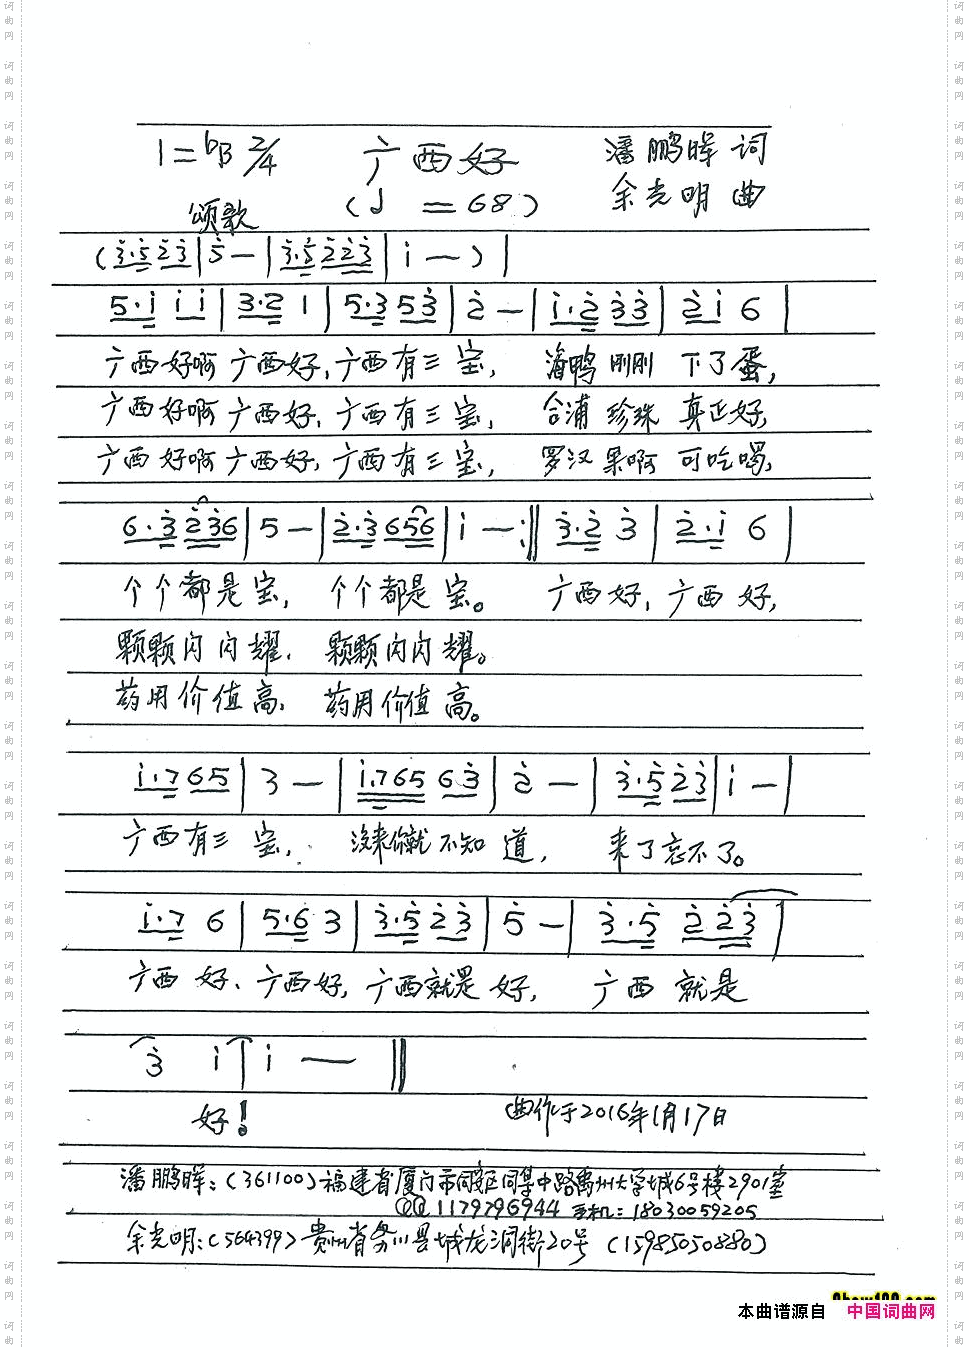 1=♭B 2/4 广西好 潘鹏晖 词
颂歌 (♩ =68) 余光明 曲
(3·5 23|5 —|3·5 223|i —)|
5·i i i|3·2 1|5·3 53|2 —|i·2 33|2i 6|
广西好啊 广西好,广西有三 宝, 海鸭 刚刚 下了蛋,
广西好啊 广西好,广西有三 宝, 合浦 珍珠 真正好,
广西好啊 广西好,广西有三 宝, 罗汉 果啊 可吃喝,
6·3 236|5 —|2·3 656|i —:‖3·2 3|2·i 6|
个个都是宝, 个个都是宝。 广西好,广西 好,
颗颗闪闪耀, 颗颗闪闪耀。
药用价值高, 药用价值高。
i·7 65|3 —|i·765 63|2 —|3·5 23|i —|
广西有三 宝, 没来你就不知 道, 来了忘不了。
i·7 6|5·6 3|3·5 23|5 —|3·5 2 23|
广西 好、广西好,广西就是 好, 广西 就是
3 i|i —‖
好!
曲作于2016年1月17日
潘鹏晖:(361100)福建省厦门市同安区同集中路禹州大学城6号楼2901室
QQ 1179796944 手机:18030059205
余光明:(564399)贵州省务川县城龙洞街20号 (15985050880)
本曲谱源自 中国词曲网
词曲网